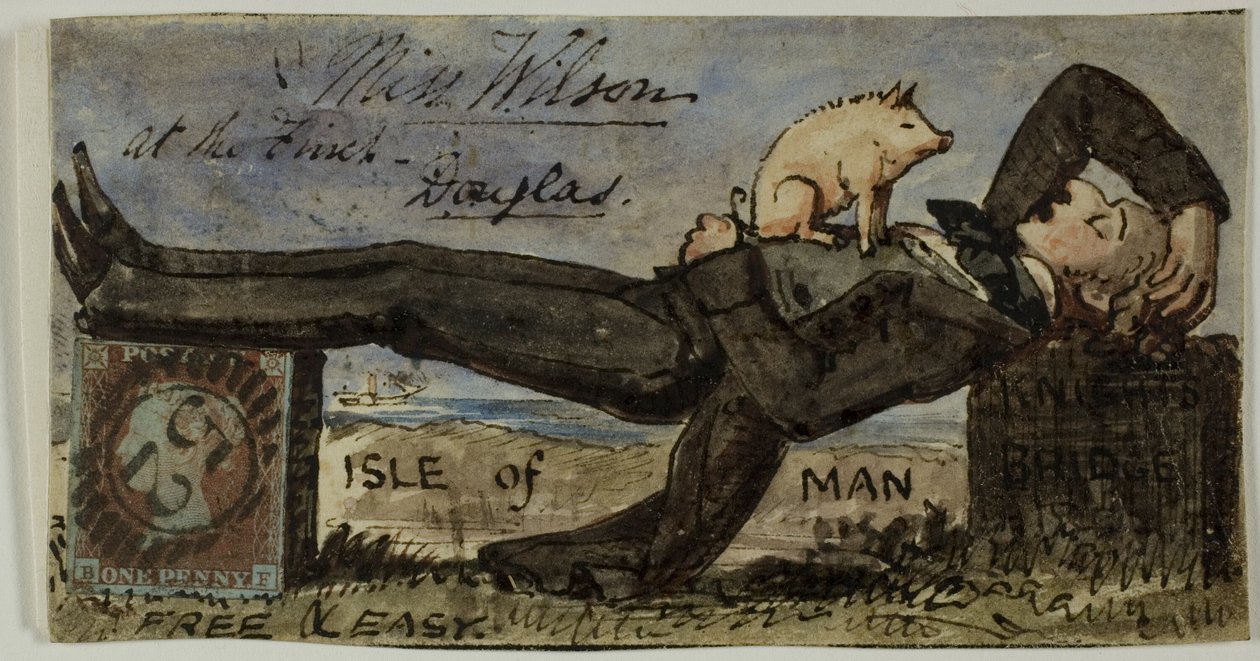 Miss Wilson
at the
Douglas.
KNIGHTS
BRIDGE
ISLE of MAN
POSTAGE
ONE PENNY F
FREE & EASY.